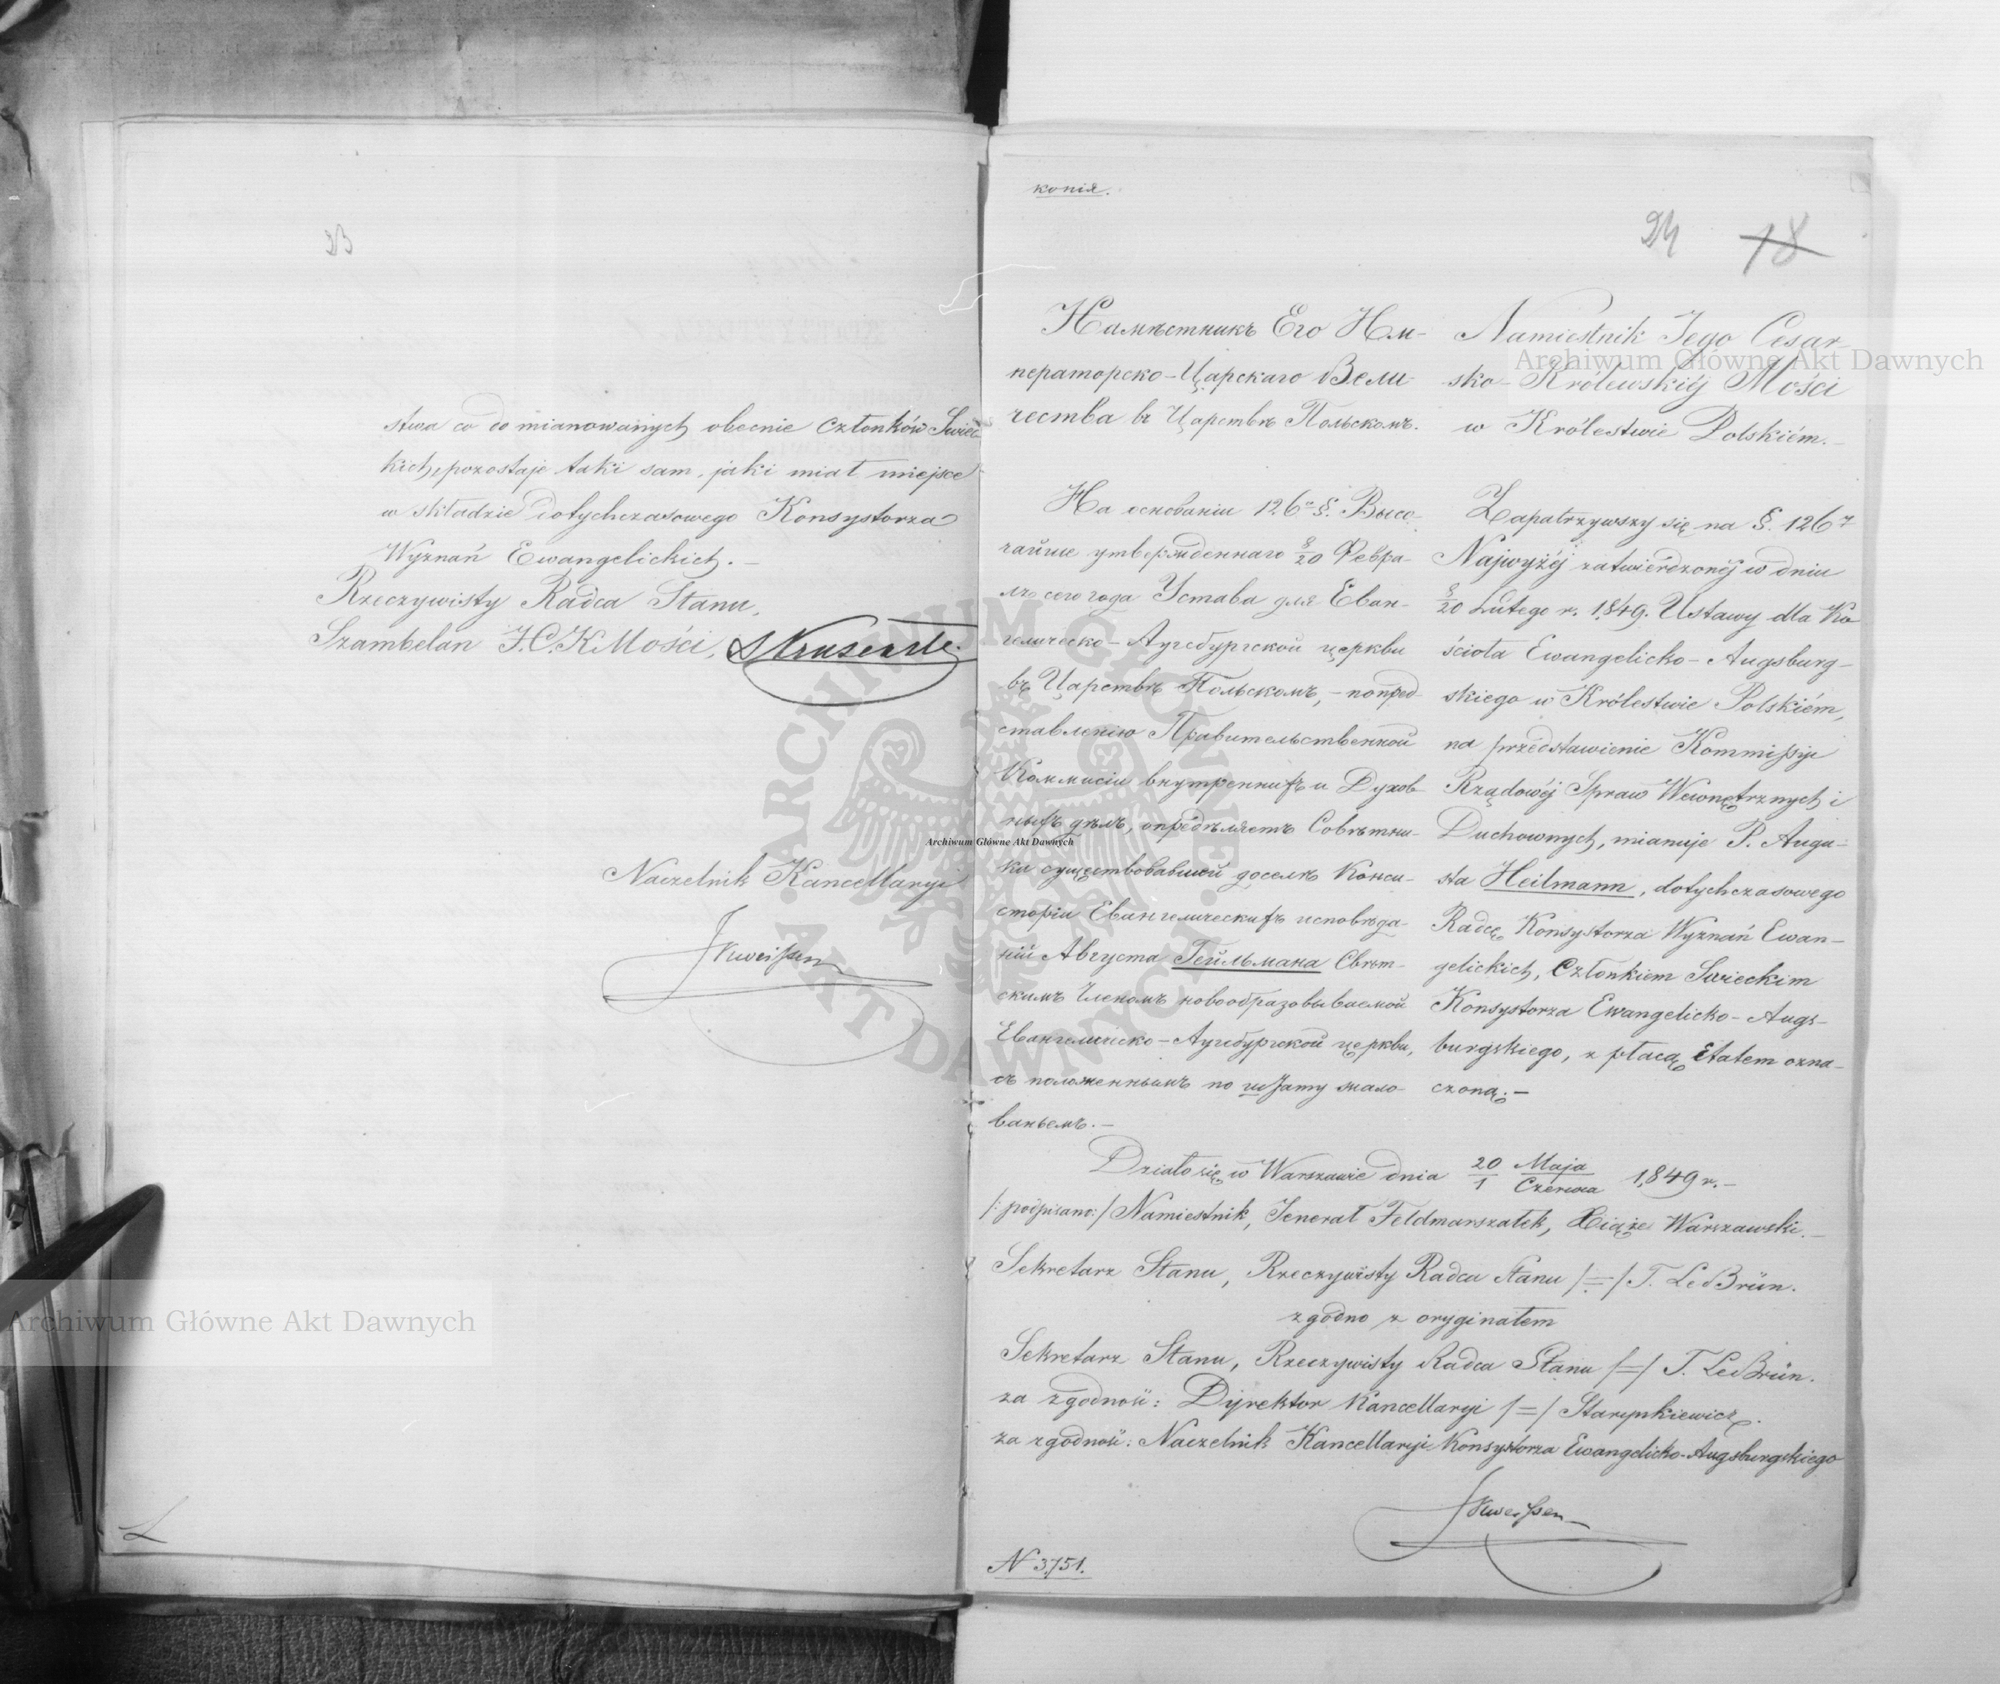 23
stwa co do mianowanych obecnie Członków Świec-
kich, pozostaje taki sam, jaki miał miejsce
w składzie dotychczasowego Konsystorza
Wyznań Ewangelickich. —
Rzeczywisty Radca Stanu,
Szambelan J.C.K.Mości,
Naczelnik Kancellaryi
копія.
24 18
Намѣстникъ Его Им-
ператорско-Царскаго Вели-
чества въ Царствѣ Польскомъ.
На основаніи 126го §. Высо-
чайше утвержденнаго 8/20 Февра-
ля сего года Устава для Еван-
гелическо-Аугсбургской церкви
въ Царствѣ Польскомъ, — по пред-
ставленію Правительственной
Коммисіи внутреннихъ и Духов-
ныхъ дѣлъ, опредѣляетъ Совѣтни-
ка существовавшей доселѣ Конси-
сторіи Евангелическихъ исповѣда-
ній Августа Гейльмана Свѣт-
скимъ Членомъ новообразовываемой
Евангелическо-Аугсбургской церкви,
съ положеннымъ по штату жало-
ваньемъ. —
Namiestnik Jego Cesar-
sko-Królewskiéj Mości
w Królestwie Polskiém. —
Zapatrzywszy się na §. 126
Najwyżéj zatwierdzonéj w dniu
8/20 Lutego r. 1849. Ustawy dla Ko-
ścioła Ewangelicko-Augsburg-
skiego w Królestwie Polskiém,
na przedstawienie Kommissyi
Rządowéj Spraw Wewnętrznych i
Duchownych, mianuje P. Augu-
sta Heilmann, dotychczasowego
Radcę Konsystorza Wyznań Ewan-
gelickich, Członkiem Świeckim
Konsystorza Ewangelicko-Augs-
burgskiego, z płacą Etatem ozna-
czoną. —
Działo się w Warszawie dnia 20/1 Maja/Czerwca 1849 r. —
/:podpisano:/ Namiestnik, Jenerał Feldmarszałek, Xiąże Warszawski. —
Sekretarz Stanu, Rzeczywisty Radca Stanu /=/ T. Le Brün.
zgodno z oryginałem
Sekretarz Stanu, Rzeczywisty Radca Stanu /=/ T. Le Brün.
za zgodność: Dyrektor Kancellaryi /=/ Starynkiewicz.
za zgodność: Naczelnik Kancellaryi Konsystorza Ewangelicko-Augsburgskiego
N 3751.
Archiwum Główne Akt Dawnych
Archiwum Główne Akt Dawnych
Archiwum Główne Akt Dawnych
ARCHIWUM GŁÓWNE · AKT DAWNYCH ·